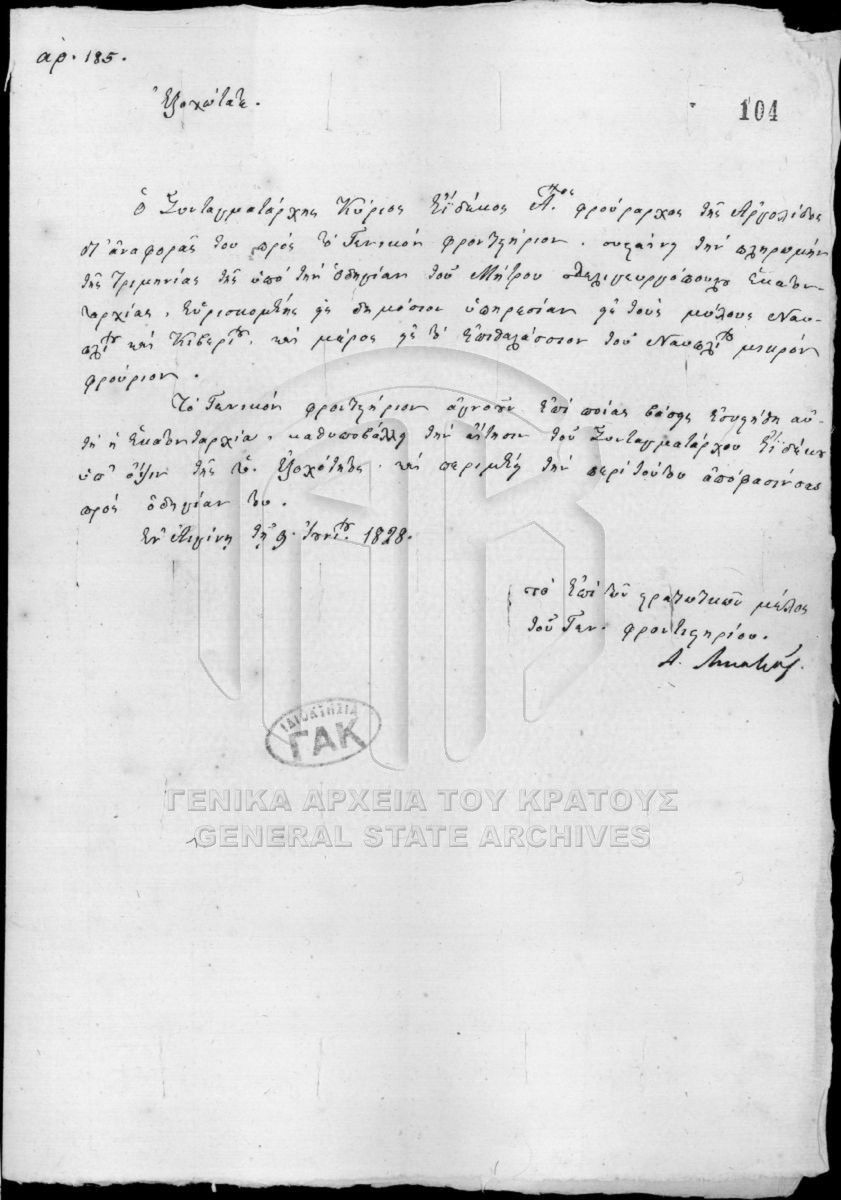 ἀρ. 185.
104
Ἐξοχώτατε.
Ὁ Συνταγματάρχης Κύριος Ἐϊδέκος Α.ʹ φρούραρχος τῆς Ἀργολίδος
δι' ἀναφορᾶς του πρὸς τὸ Γενικὸν φροντιστήριον, τὴν πληρωμὴν
τῆς τριμηνίας τῆς ὑπὸ τὴν ὁδηγίαν τοῦ Μήτρου Ἑκατον-
ταρχίας, εὑρισκομένης εἰς δημόσιον ὑπηρεσίαν εἰς τοὺς μύλους Ναυ-
πλίου καὶ Κιβερίου, καὶ μέρος εἰς τὸ ἐπιθαλάσσιον τοῦ Ναυπλίου μικρὸν
φρούριον.
Τὸ Γενικὸν φροντιστήριον ἀγνοοῦν ἐπὶ ποίας βάσεως ἐσυστήθη αὐ-
τὴ ἡ Ἑκατονταρχία, καθυποβάλλει τὴν αἴτησιν τοῦ Συνταγματάρχου Ἐϊδέκου
ὑπ' ὄψιν τῆς Ὑ. Ἐξοχότητος, καὶ περιμένει τὴν περὶ τούτου ἀπόφασίν σας
πρὸς ὁδηγίαν του.
Ἐν Αἰγίνῃ τῇ 9. Ἰουνίου 1828.
τὸ ἐπὶ τῶν στρατιωτικῶν μέλος
τοῦ Γεν. φροντιστηρίου.
Α.
ΙΔΙΟΚΤΗΣΙΑ
ΓΑΚ
ΓΕΝΙΚΑ ΑΡΧΕΙΑ ΤΟΥ ΚΡΑΤΟΥΣ
GENERAL STATE ARCHIVES